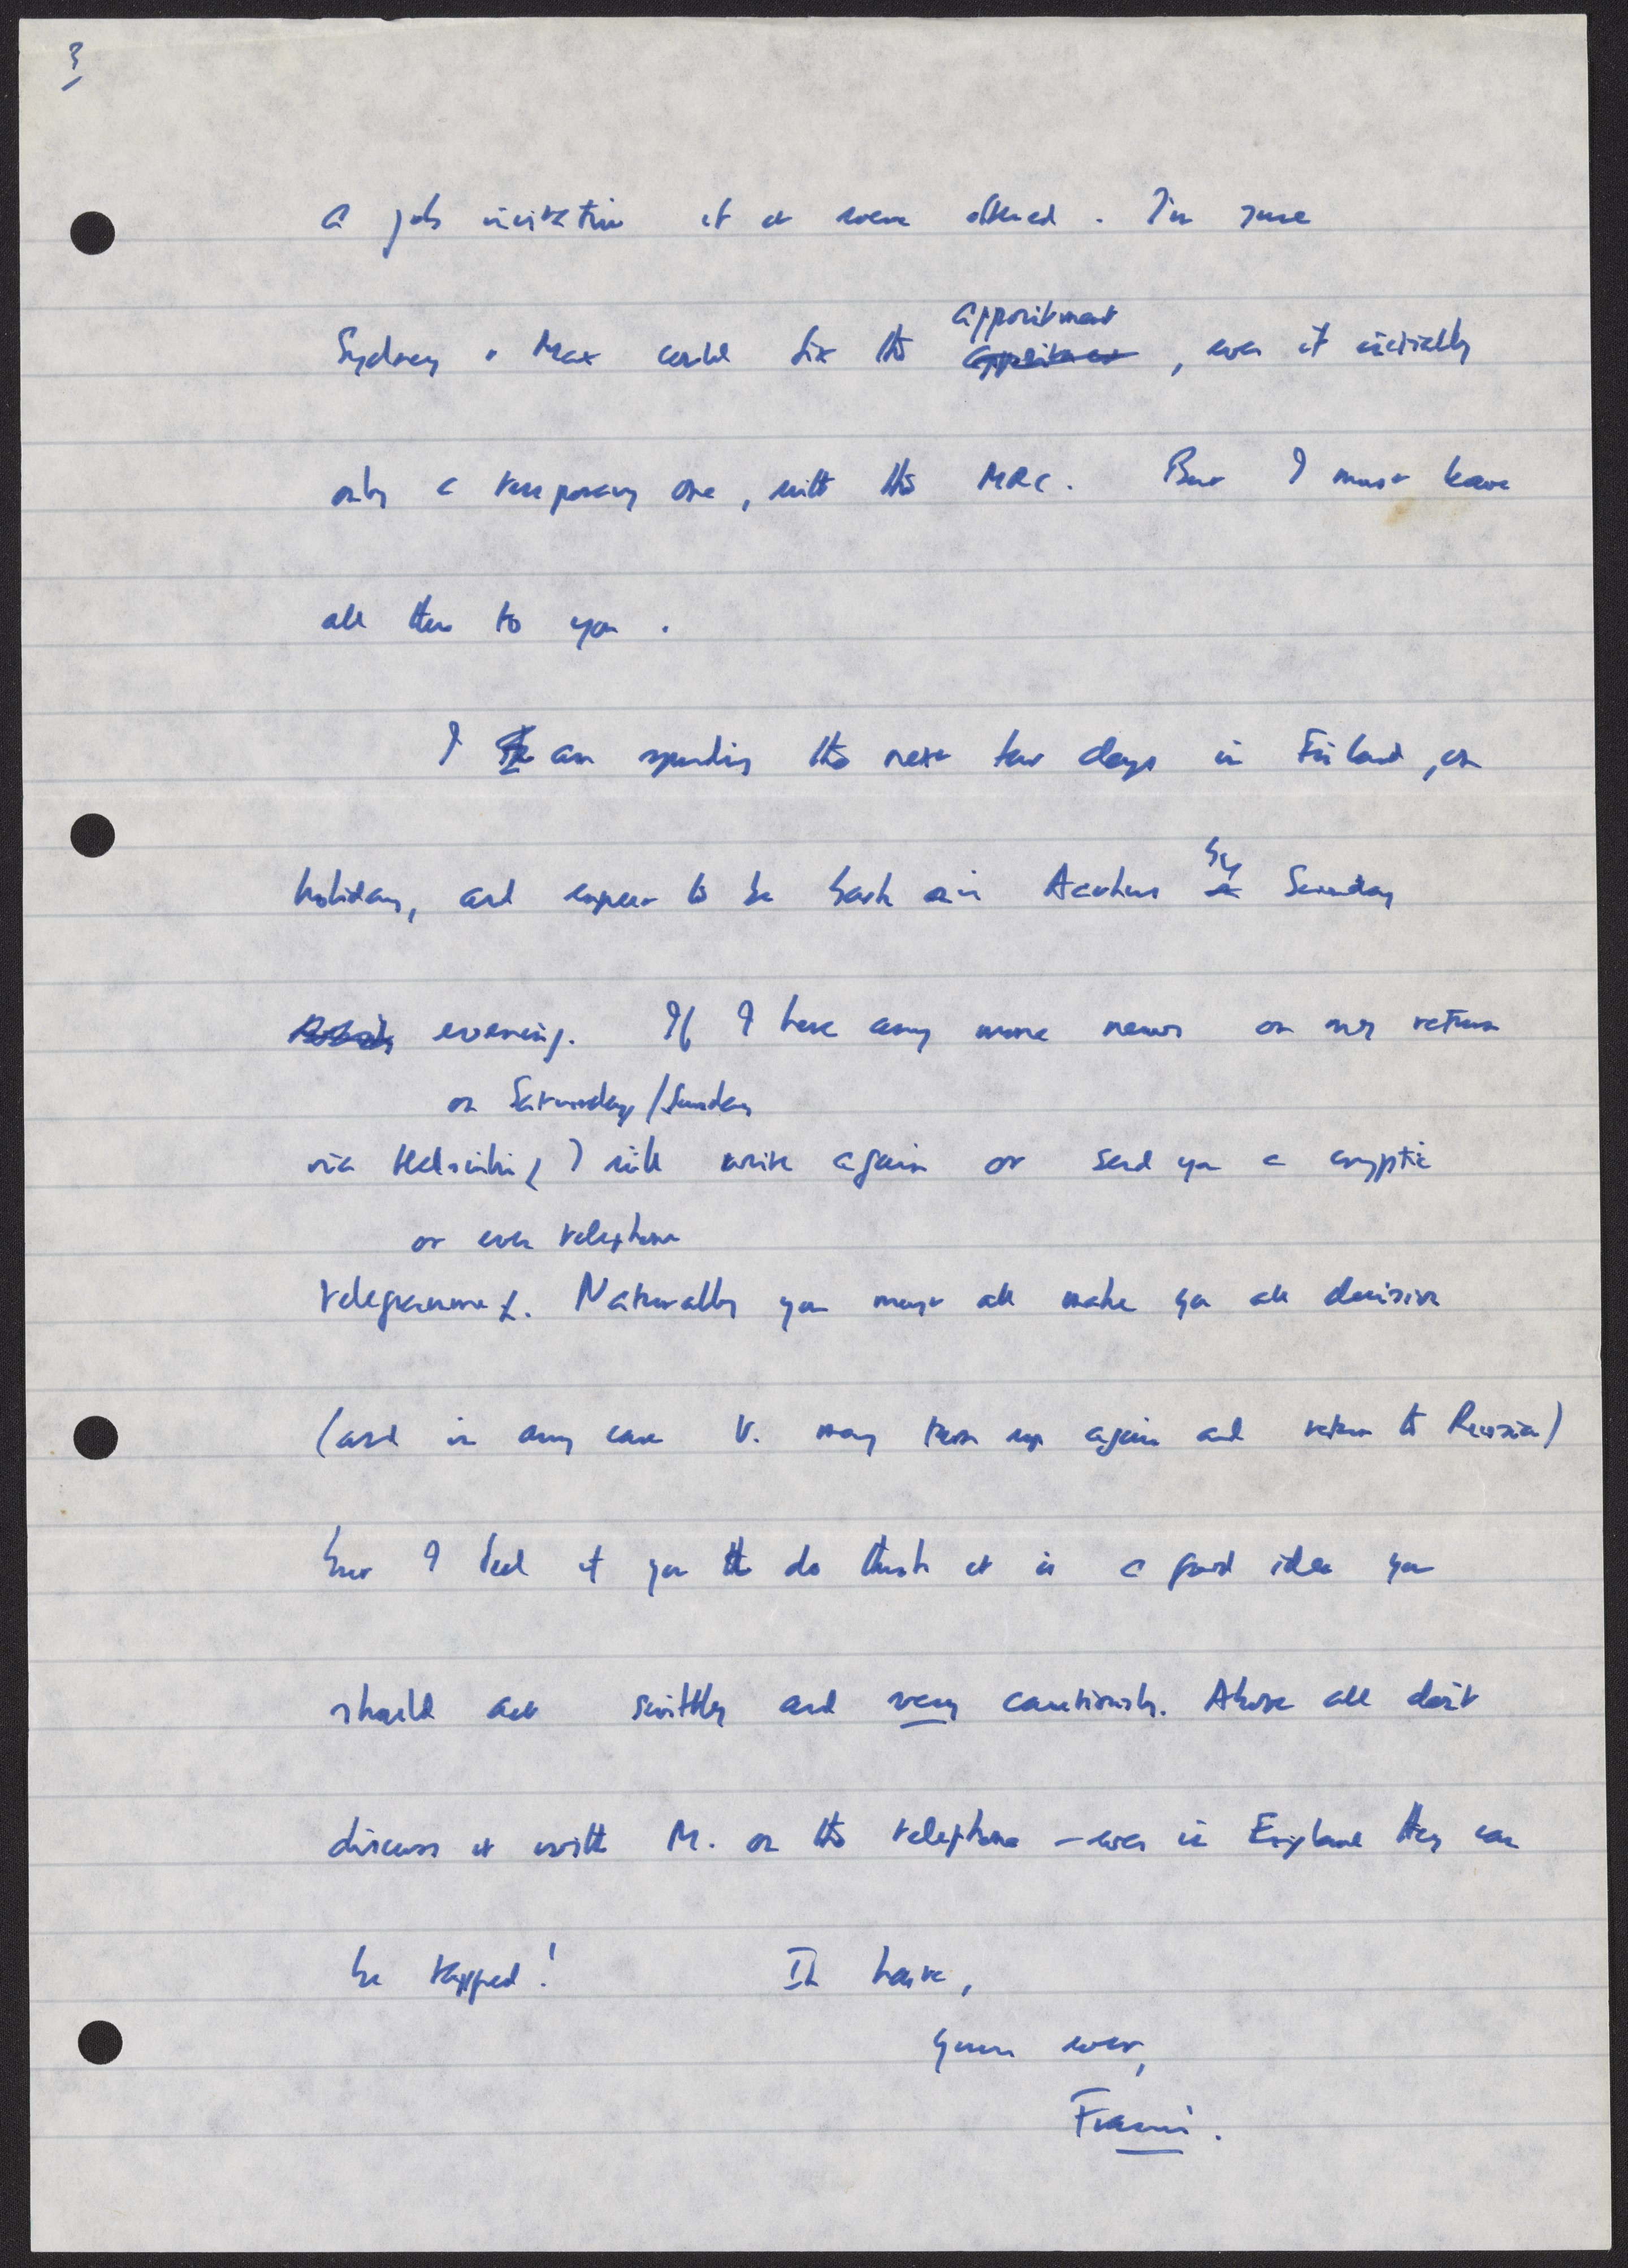 3
a job invitation if it were offered. I'm sure
appointment
Sydney + Max could fix the appointment, even if initially
only a temporary one, with the MRC. But I must leave
all this to you.
I am spending the next few days in Finland, on
by
holiday, and expect to be back in Aarhus Sunday
evening. If I have any more news on my return
on Saturday/Sunday
via Helsinki, I will write again or send you a cryptic
or even telephone
telegramme. Naturally you must all make you all decision
(and in any case V. may turn up again and return to Russia)
but I feel if you do think it is a good idea you
should act swiftly and very cautiously. Above all don't
discuss it with M. on the telephone - even in England they can
be tapped! In haste,
yours ever,
Francis.